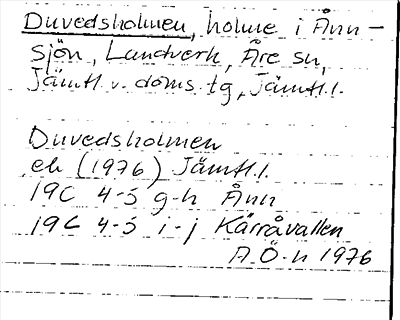 Duvedsholmen, holme i Ånn-
sjön, Landverk, Åre sn,
Jämtl. v. doms. tg, Jämtl. l.
Duvedsholmen
ek (1976) Jämtl. l.
19C 4-5 g-h Ånn
19C 4-5 i-j Kärråvallen
A.Ö-n 1976